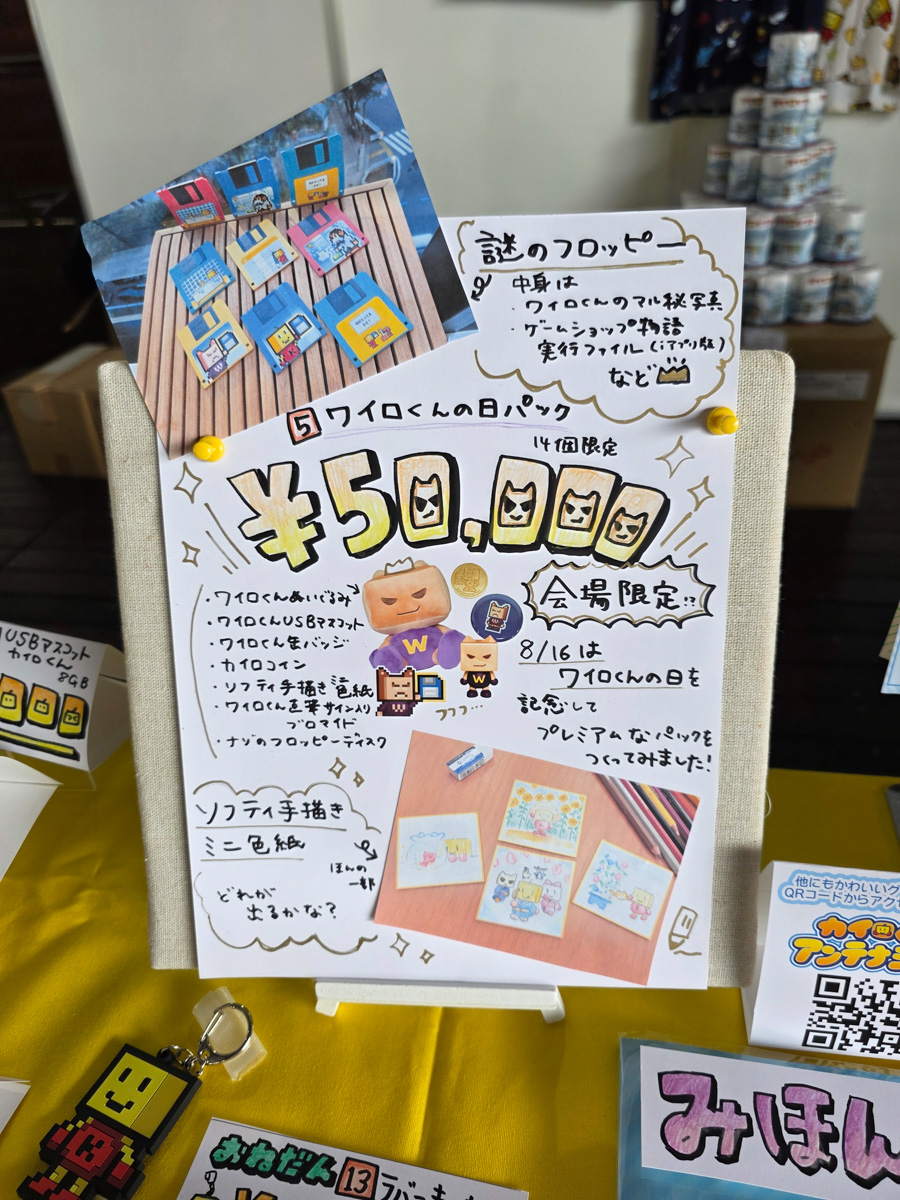 謎のフロッピー
中身は
・ワイロくんのマル秘写真
・ゲームショップ物語
実行ファイル(iアプリ版)
など
5 ワイロくんの日パック
14個限定
¥50,000
会場限定!?
・ワイロくんぬいぐるみ
・ワイロくんUSBマスコット
・ワイロくん缶バッジ
・カイロコイン
・ソフティ手描きミニ色紙
・ワイロくん直筆サイン入り
ブロマイド
・ナゾのフロッピーディスク
W
W
フフフ…
8/16は
ワイロくんの日を
記念して
プレミアムなパックを
つくってみました!
ソフティ手描き
ミニ色紙
ほんの
一部
どれが
出るかな?
USBマスコット
カイロくん
8GB
他にもかわいいグ
QRコードからアクセ
カイロく
アンテナシ
みほん
おねだん 13